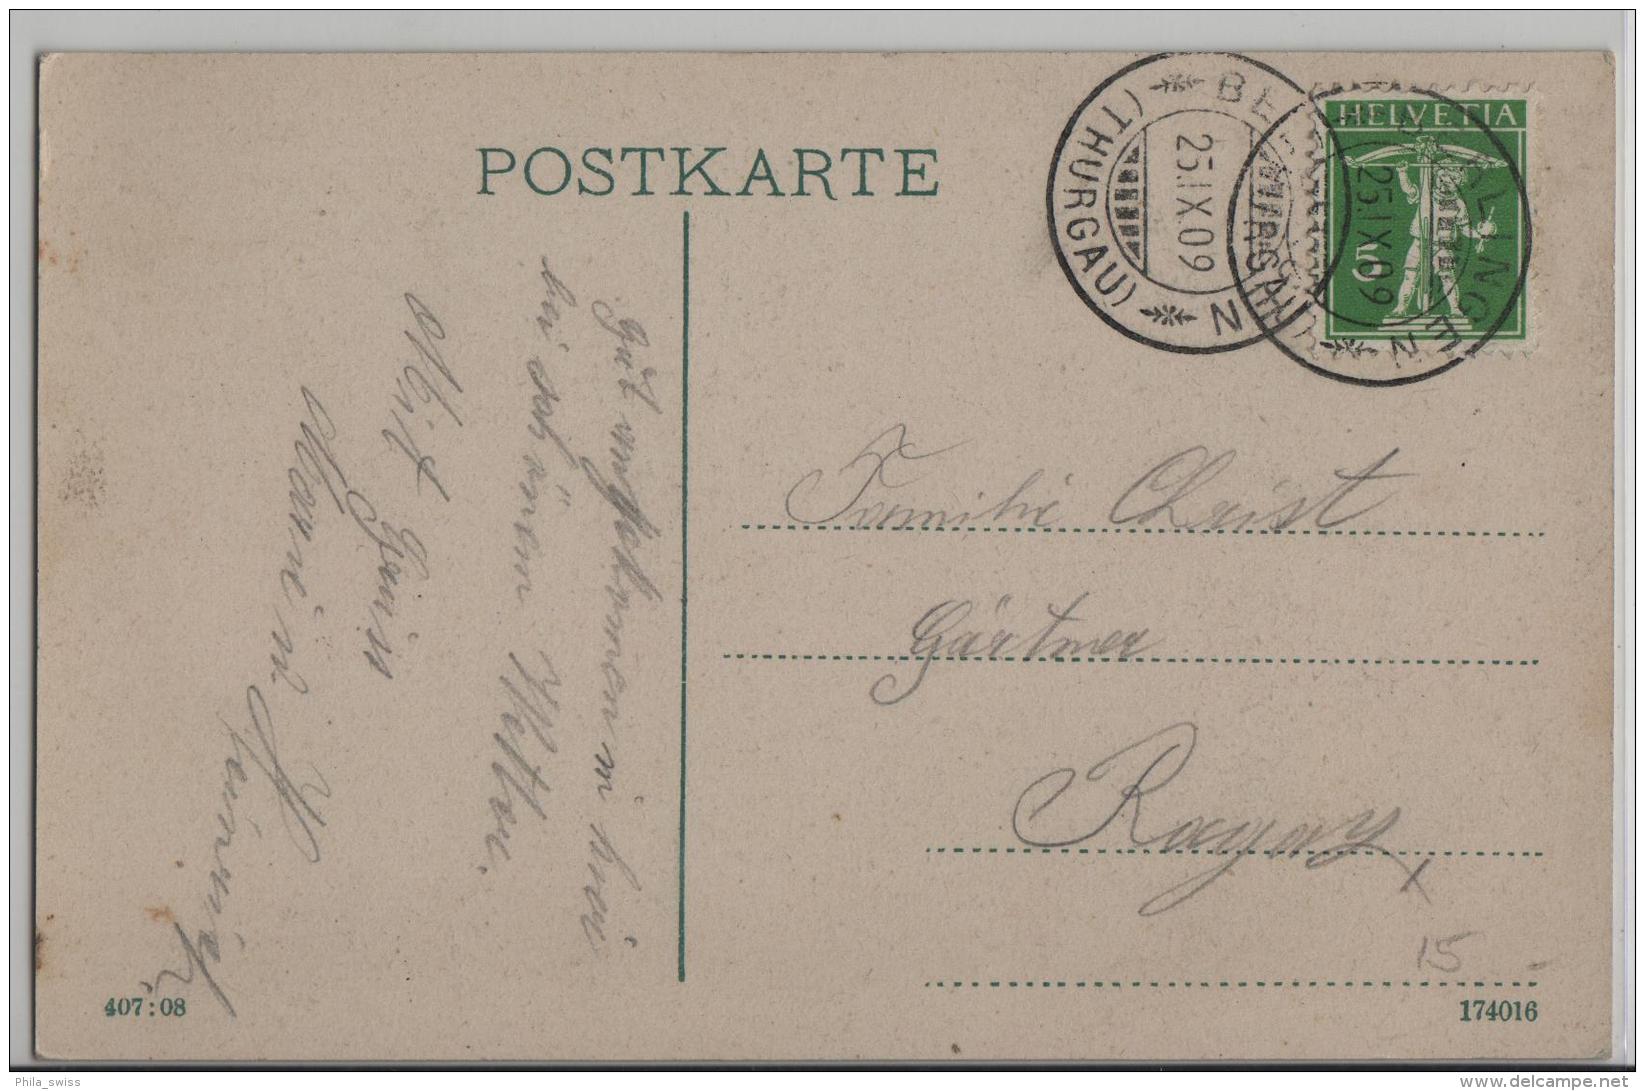 POSTKARTE
HELVETIA
5
25.IX.09
(THURGAU)
25.IX.09
(THURGAU)
Gut angekommen in
bei schönem Wetter.
Mit Gruss
Familie Christ
Gärtner
Ragaz
15 -
407:08
174016
Phila_swiss
www.delcampe.net